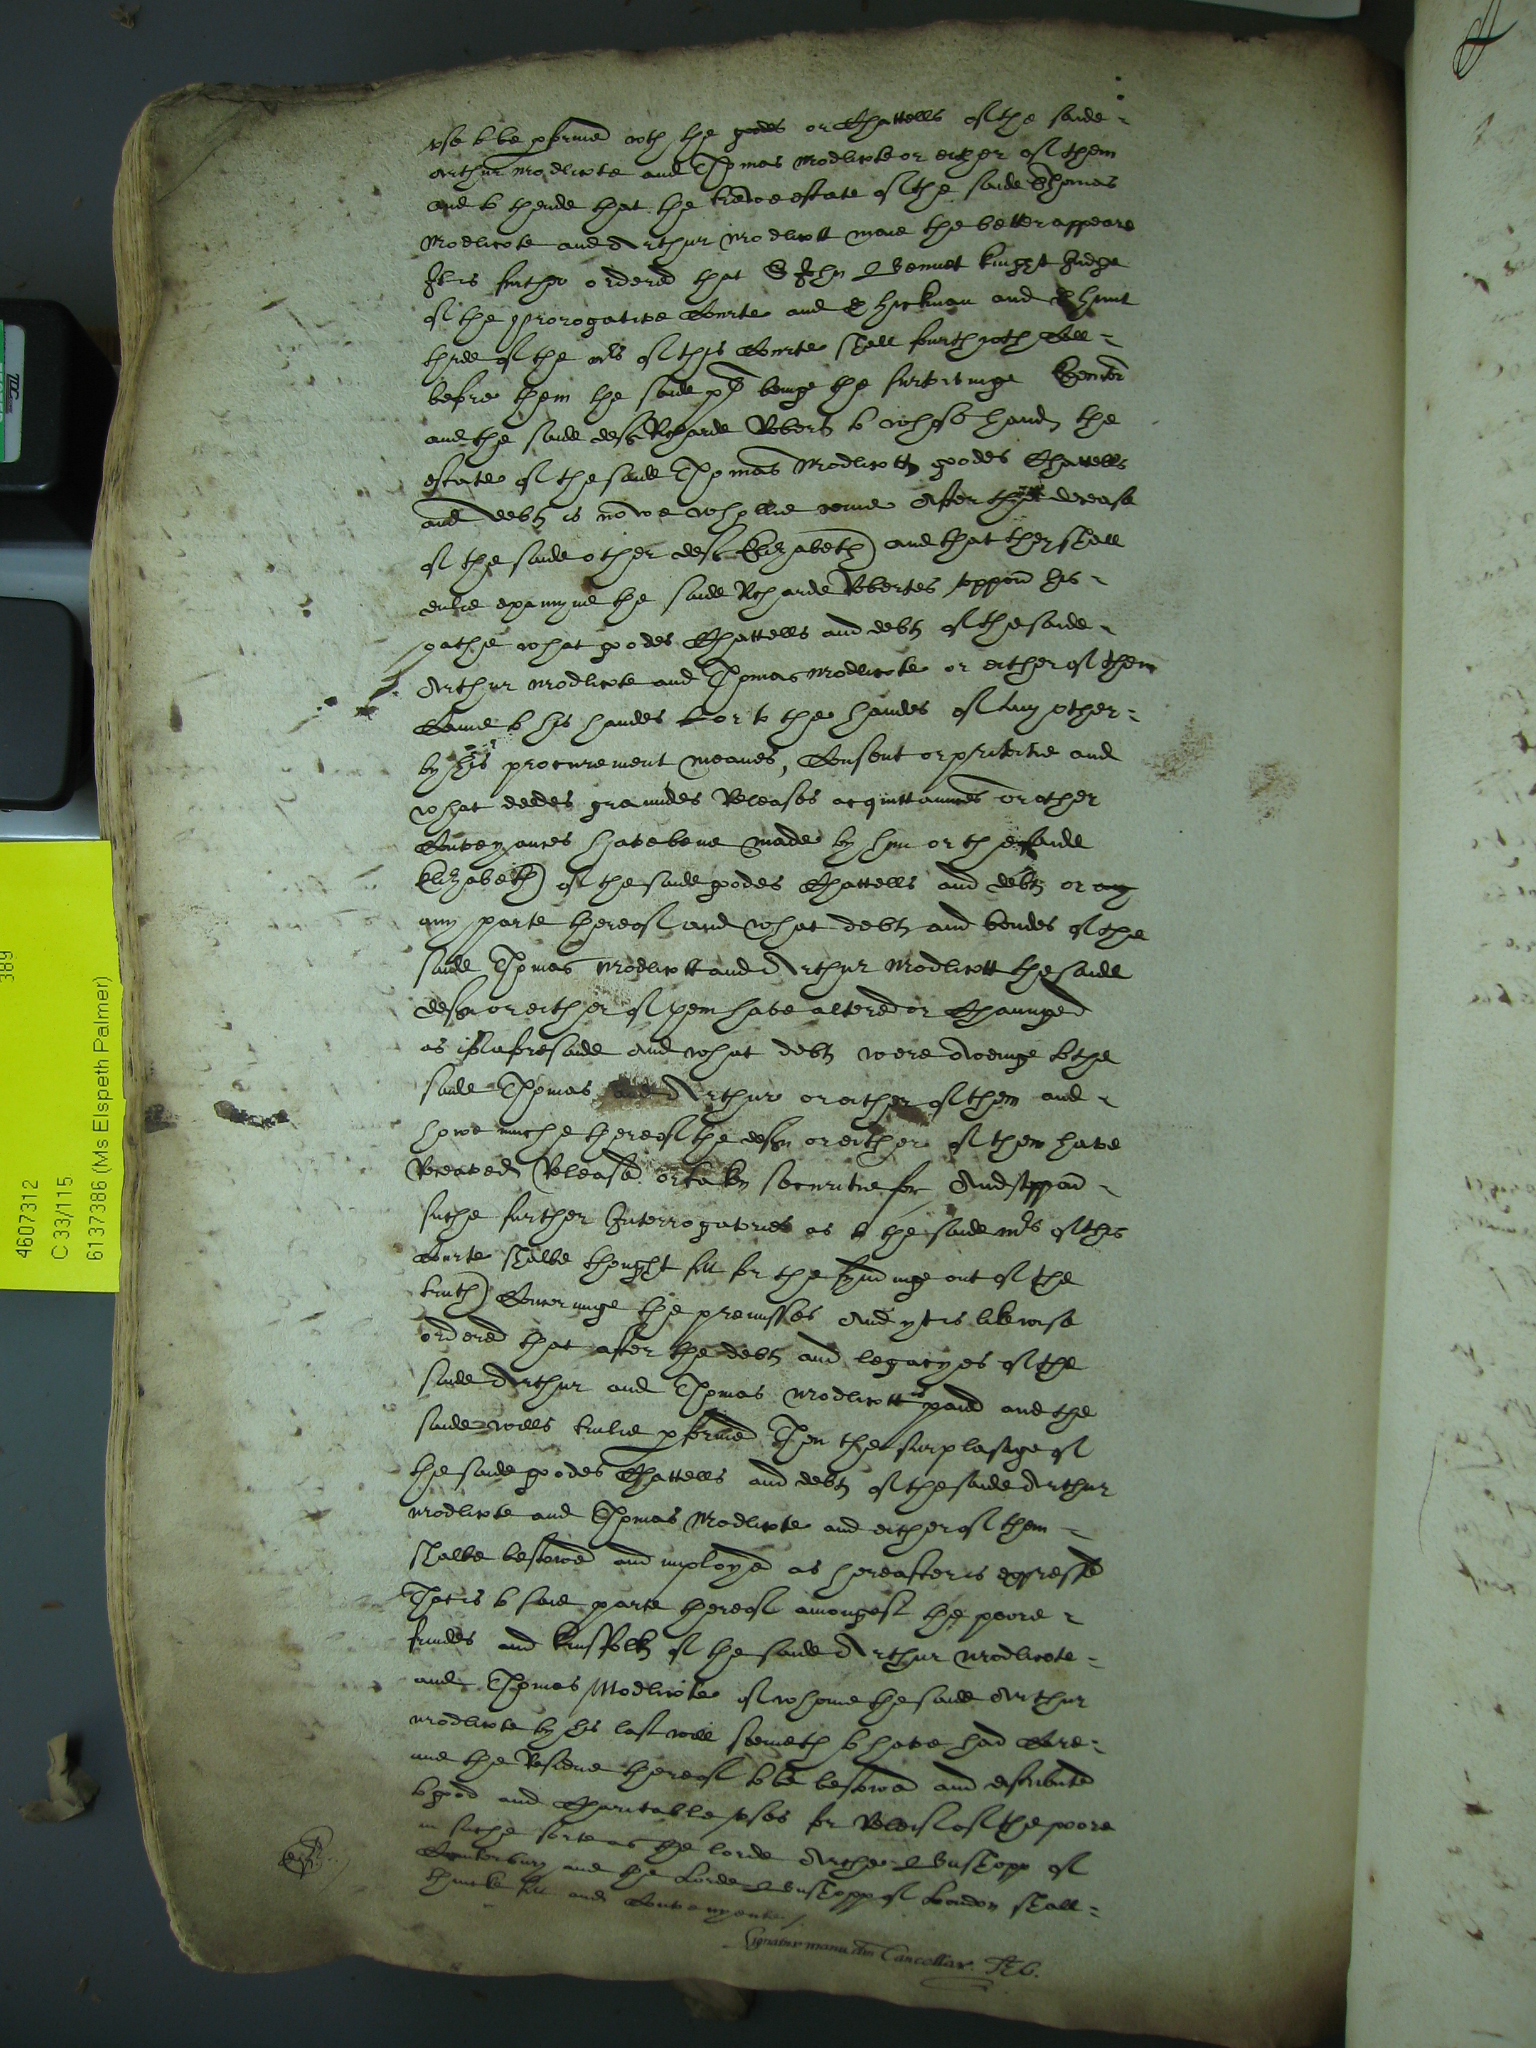 use to be performed wth the goodes or Chattells of the saide
Arthur Modlicote and Thomas Modlicote or either of them
and to thende that the trewe estate of the saide Thomas
Modlicote and Arthur Modlicott maie the better appeare
It is further ordered that Sr John Bennet knight Judge
of the Prorogative Courte and D Hickman and D Hunt
three of the mrs of this Courte shall fourthwth Call
before them the saide pl beinge the survivinge Executor
and the saide deft Richarde Roberts to whose hands the
estate of the saide Thomas Modlicotts goodes Chattells
and debts is nowe whollie come After the decease
of the saide other deft Elizabeth and that they shall
dulie examyne the saide Richarde Robertes uppon his
oathe what goodes Chattells and debts of the saide
Arthur Modlicote and Thomas Modlicote or either of them
Came to his handes or to the handes of any other
by his procurement meanes, Consent or privitie and
what deedes grauntes Releases acquittaunces or other
Conveyances have bene made by him or the saide
Elizabeth of the saide goodes Chattells and debts or any
any parte thereof and what debts and bondes of the
saide Thomas Modlicott and Arthur Modlicott the saide
defts or either of them have altered or Chaunged
as is aforesaide And what debts were Oweinge to the
saide Thomas and Arthur or either of them and
howe muche thereof the defts or either of them have
Receaved Released or taken securitie for And uppon
suche further Interrogatories as to the saide mrs of this
Courte shalbe thought fitt for the fyndinge out of the
truth Concerninge the premisses And yt is likewise
ordered that after the debts and legacyes of the
saide Arthur and Thomas Modlicott paid and the
saide wills trulie performed Then the surplusage of
the saide goodes Chattells and debts of the saide Arthur
Modlicote and Thomas Modlicote and either of them
shalbe bestowed and imployed as hereafter is expressed
That is to saie parte thereof amongest the poore
frindes and kinsfolks of the saide Arthur Modlicote
and Thomas Modlicote of whome the saide Arthur
Modlicote by his last will seemeth to have had Care
and the Residue thereof to be bestowed and distributed
to good and Charitable uses for Releif of the poore
in suche sorte as the lorde Arche Busshopp of
Canterbury and the Lorde Busshopp of London shall
thincke fitt and Convenyente /
Signatur manu dni Cancellar. T E C.
389
4607312
C 33/115
6137386 (Ms Elspeth Palmer)